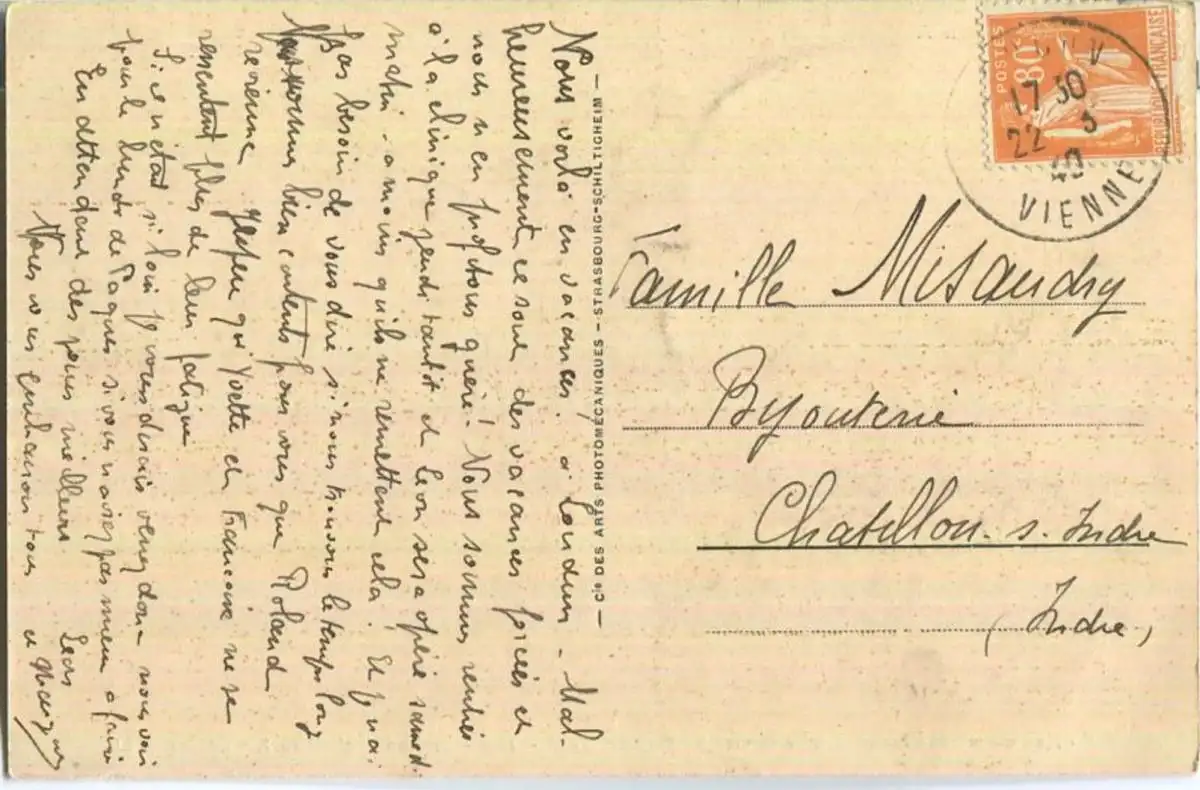 Nous voilà en vacances! à Loudun - Mal-
heureusement ce sont des vacances forcées et
nous n'en profitons guère! Nous sommes rentrés
à la clinique jeudi tantôt et Léon sera opéré samedi
matin - à moins qu'ils ne remettent cela! Et j'nai
pas besoin de vous dire si nous trouvons le temps long
Nous sommes bien contents pour vous que Roland
revienne. J'espère qu'Yvette et Francine ne se
ressentent plus de leur fatigue
Si ce n'était si loin je vous dirais venez donc nous voir
pour le lundi de Pâques si vous n'aviez pas mieux à faire
En attendant des jours meilleurs. Léon
Nous vous embrassons tous et
— Cie DES ARTS PHOTOMÉCANIQUES — STRASBOURG-SCHILTIGHEIM —
POSTES
80
RÉPUBLIQUE FRANÇAISE
17 30
22 3
40
VIENNE
Famille Misandry
Bijouterie
Chatillon. s. Indre
(Indre)